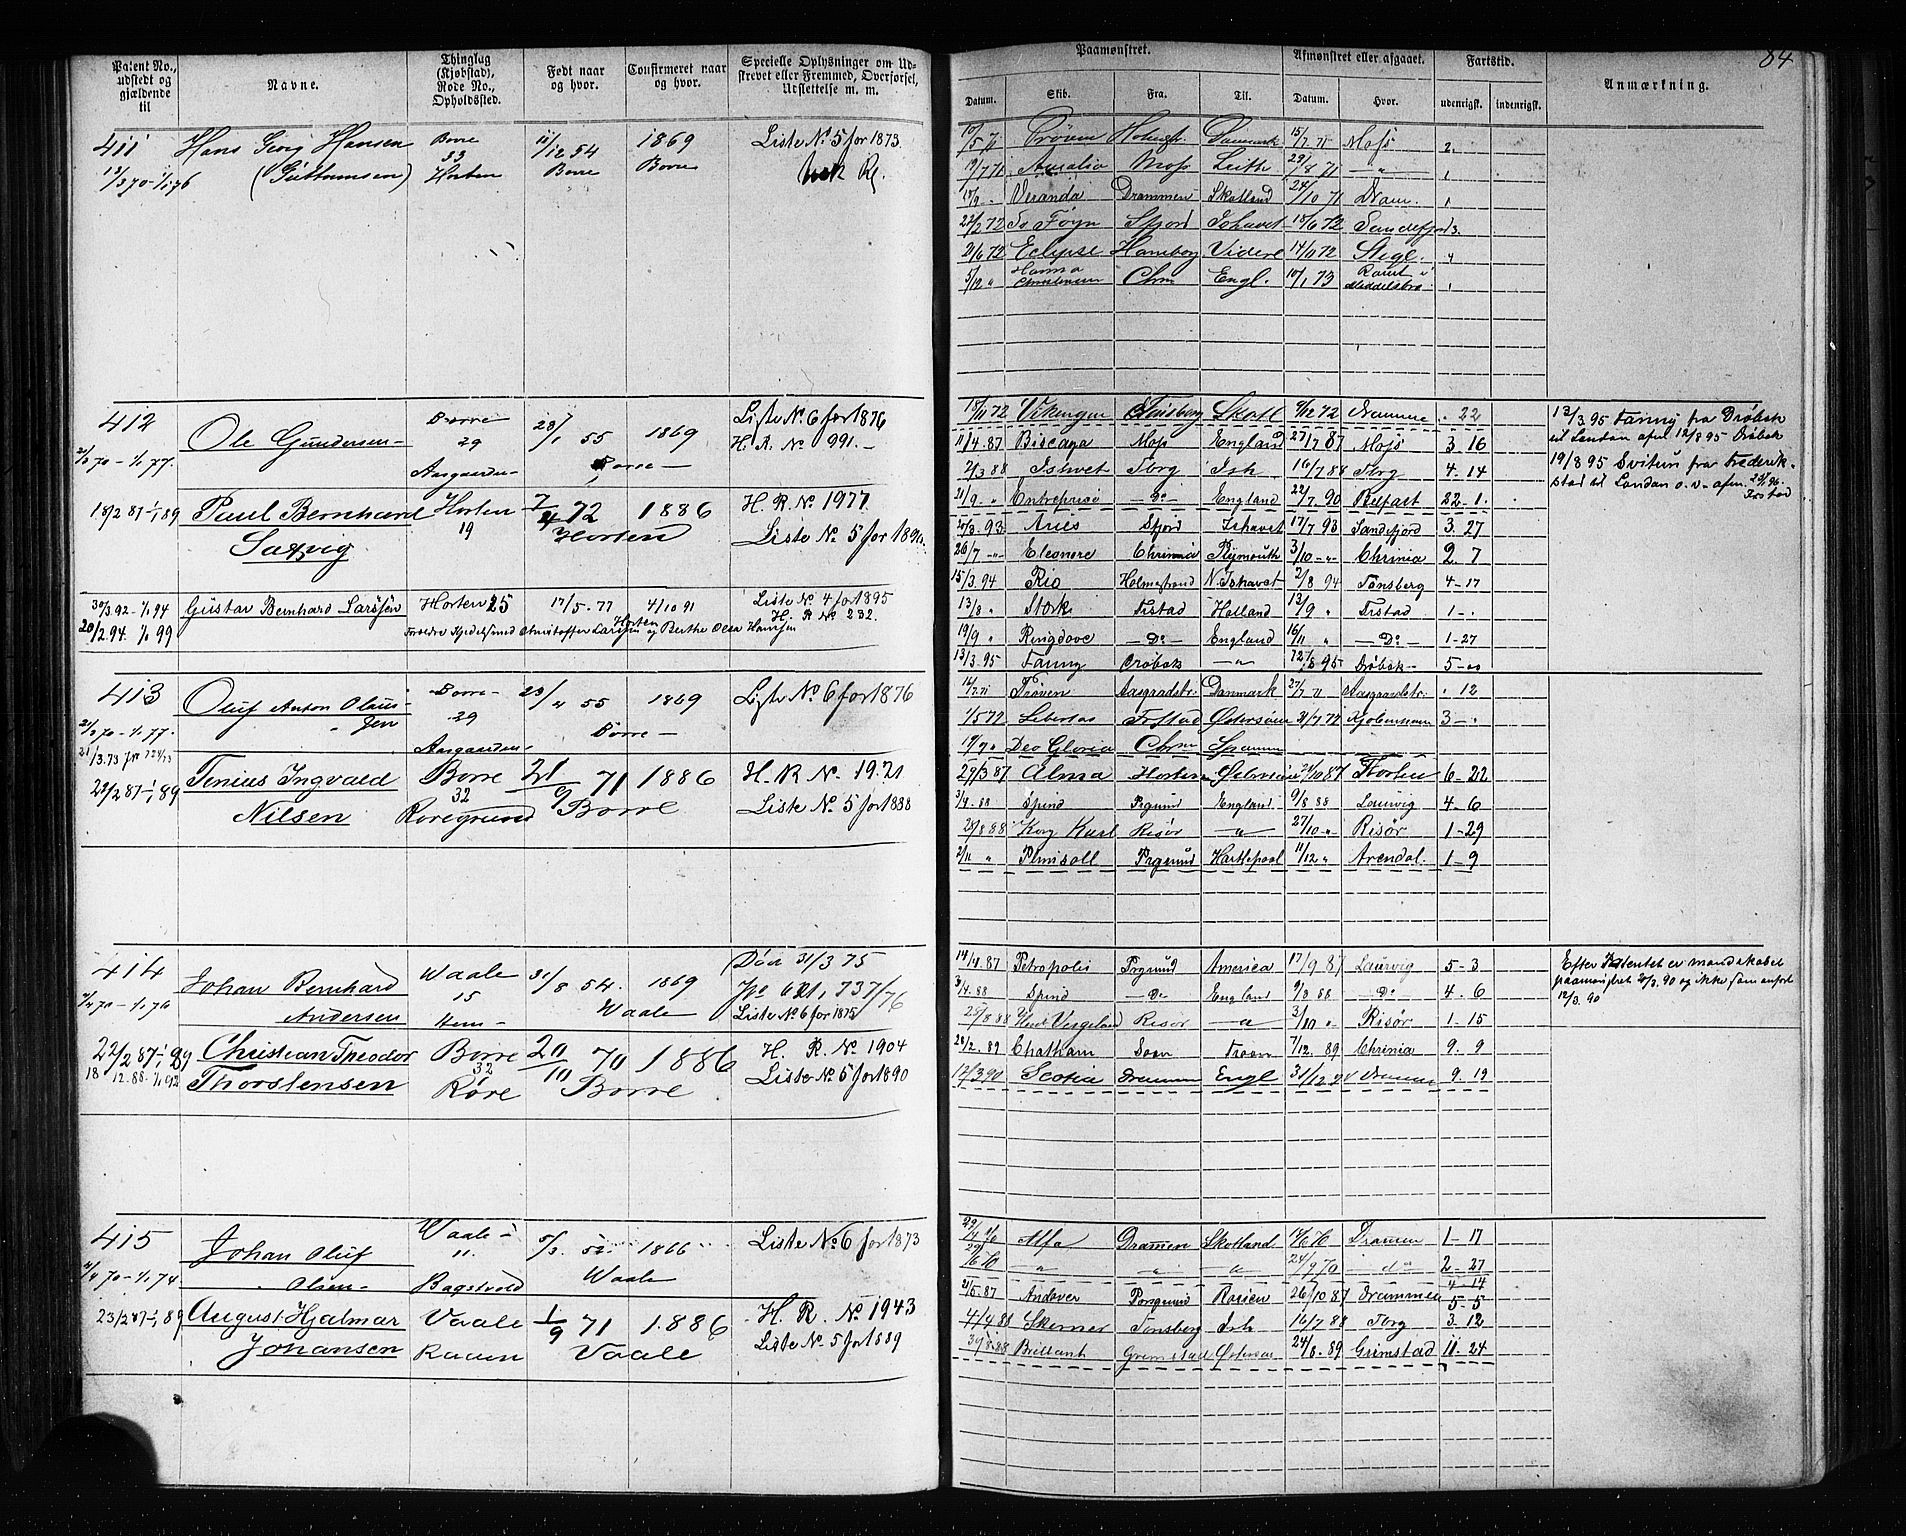 84
Patent No., udstedt og gjældende til
Navne.
Thinglag (Kjøbstad), Rode No., Opholdssted.
Født naar og hvor.
Confirmeret naar og hvor.
Specielle Oplysninger om Udskrevet eller Fremmed, Overførsel, Udslettelse m. m.
Paamønstret.
Afmønstret eller afgaaet.
Fartstid.
Anmærkning.
Datum. Skib. Fra. Til. Datum. Hvor. udenrigst. indenrigst.
411 Hans Georg Hansen Borre 11/12 54 1869 Liste No 5 for 1873
33 Horten Borre Borre
Moss 2.
19/7 71 Aurelia Moss Leith 29/8 71 — " —
Veranda Drammen Skotland 24/10 71 Dram.
22/2 72 Sv Føyn Sfjord Ishavet 18/6 72 Sandefjord 3.
21/6 72 Eclipse Hamborg Videre 14/10 72
5/12 " Hanna Christensen Chra Engl. 10/1 73
412 Ole Gundersen Borre 28/1 55 1869 Liste No 6 for 1876
29 Borre H. A. No 991.
Aasgaarden
21/3 70 - 1/1 77.
18/2 87 - 1/1 89 Paul Bernhard Horten 7/4 72 1886 H. R. No 1977
Saxvig 19 Horten Liste No 5 for 1890
30/3 92 - 1/1 94 Gustav Bernhard Larssen Horten 25 17/5 - 77 4/10 91 Liste No 4 for 1895
20/2 94 1/1 99 Horten H. R No 232.
Forældre Kjedelsmed Christoffer Larssen og Berthe Olea Hanssen
15/11 72 Vikingen Skotl 72 Dramme 22
11/4 - 87 Biscaya Moss England 27/7 87 Moss 3 16
2/3 88 Ishvet Tbrg Ish 16/7 88 Tbrg 4 - 14
21/9 - " Entreprise — Do — England 22/7 90 Belfast 22 - 1.
93 Aries Sfjord Ishavet 17/7 93 Sandefjord 3. 27
26/7 - " - Eleonore Chrinia Plymouth 3/10 - " - Chrinia 2. 7
15/3. 94 Rio Holmestrand N. Ishavet 2/8 94 Tønsberg 4 - 17
13/8 " Storke Frstad Holland 13/9 " Frstad 1 - .
19/9 " Ringdove — Do — England 16/11 " — Do — 1 - 27
13/3. 95 Fanny Drøbak — " — 12/8 95 Drøbak 5 - "
13/3. 95 Fanny fra Drøbak
til London afm 12/8 95 Drøbak
19/8 95 Svitun fra Frederik-
stad til London o. v. afm.
413 Oluf Anton Olaus- Borre 23/" 55 1869 Liste No 6 for 1876
sen 29 Borre
Aasgaarden
21/3 70 - 1/1 77.
22/2 87 - 1/1 89 Tenius Ingvald Borre 21/9 71 1886 H. R No. 1921
Nilsen 32 Borre Liste No. 5 for 1888
Røregrund
16/7 71 Prøven Aasgradstr. Danmark 27/7 71 Aasgraadstr. 12
1/5 72 Libertas Frstad Østersøen 31/7 72 Kjøbenhavn 3 -
Deo Gloria Chra
29/3 87 Alma Horten 21/10 87 Horten 6 - 22
3/4 - 88 Spind Prgrund England 9/8 88 Laurvig 4 - 6
28/8 88 Kong Karl Risør — " — 27/10 - " Risør 1 - 29
2/11 " Plimsoll Prgrund Hartlepool 11/12 " Arendal. 1 - 9
414 Johan Bernhard Waale 31/8 54. 1869 Død 31/3 75
Andersen 15 Waale Liste No 6 for 1875
22/2 87 - 1/1 89 Christian Theodor Borre 20/10 70 1886 H. R. No 1904
18 12. 88. 1/1 92 Thorstensen 32 Borre Liste No 5 for 1890
Røre
87 Petropolis Prgrund America 17/9 87 Laurvig 5 - 3
3/4. 88 Spind — Do — England 9/8 88 — Do — 4. 6
25/8 88 Henr Vergeland Risør — " — 3/10 " Risør 1. 15
28/2. 89 Chatham Soon 7/12. 89 Chrinia 9. 9
12/3 90 Scotia Drammen Engl 9. 19
Efter Patentet er mandskabet
paamønstret 20/3. 90 og ikke som anført
12/3. 90
415 Johan Oluf Waale 52 1866 Liste No 6 for 1873
Olsen 11 Waale
4/4 70 - 1/1 74. Bagstvold
23/2 87 - 1/1 89 August Hjalmar Vaale 1/9 71 1886 H. R. No 1943
Johansen Raaen Vaale Liste No 5 for 1889
Alfa Dramen Skotland Dramen 1 - 17
" " " 24/9 70 do 2 - 27
4 - 14
21/5 - 87 Andover Porsgrund 26/10 87 Drammen 5 - 5
4/4 88 Skerner Tønsberg Ish 16/7 88 Tbrg 3. 12
Brillant Grimstad 24/8 - 89 Grimstad 11 - 24